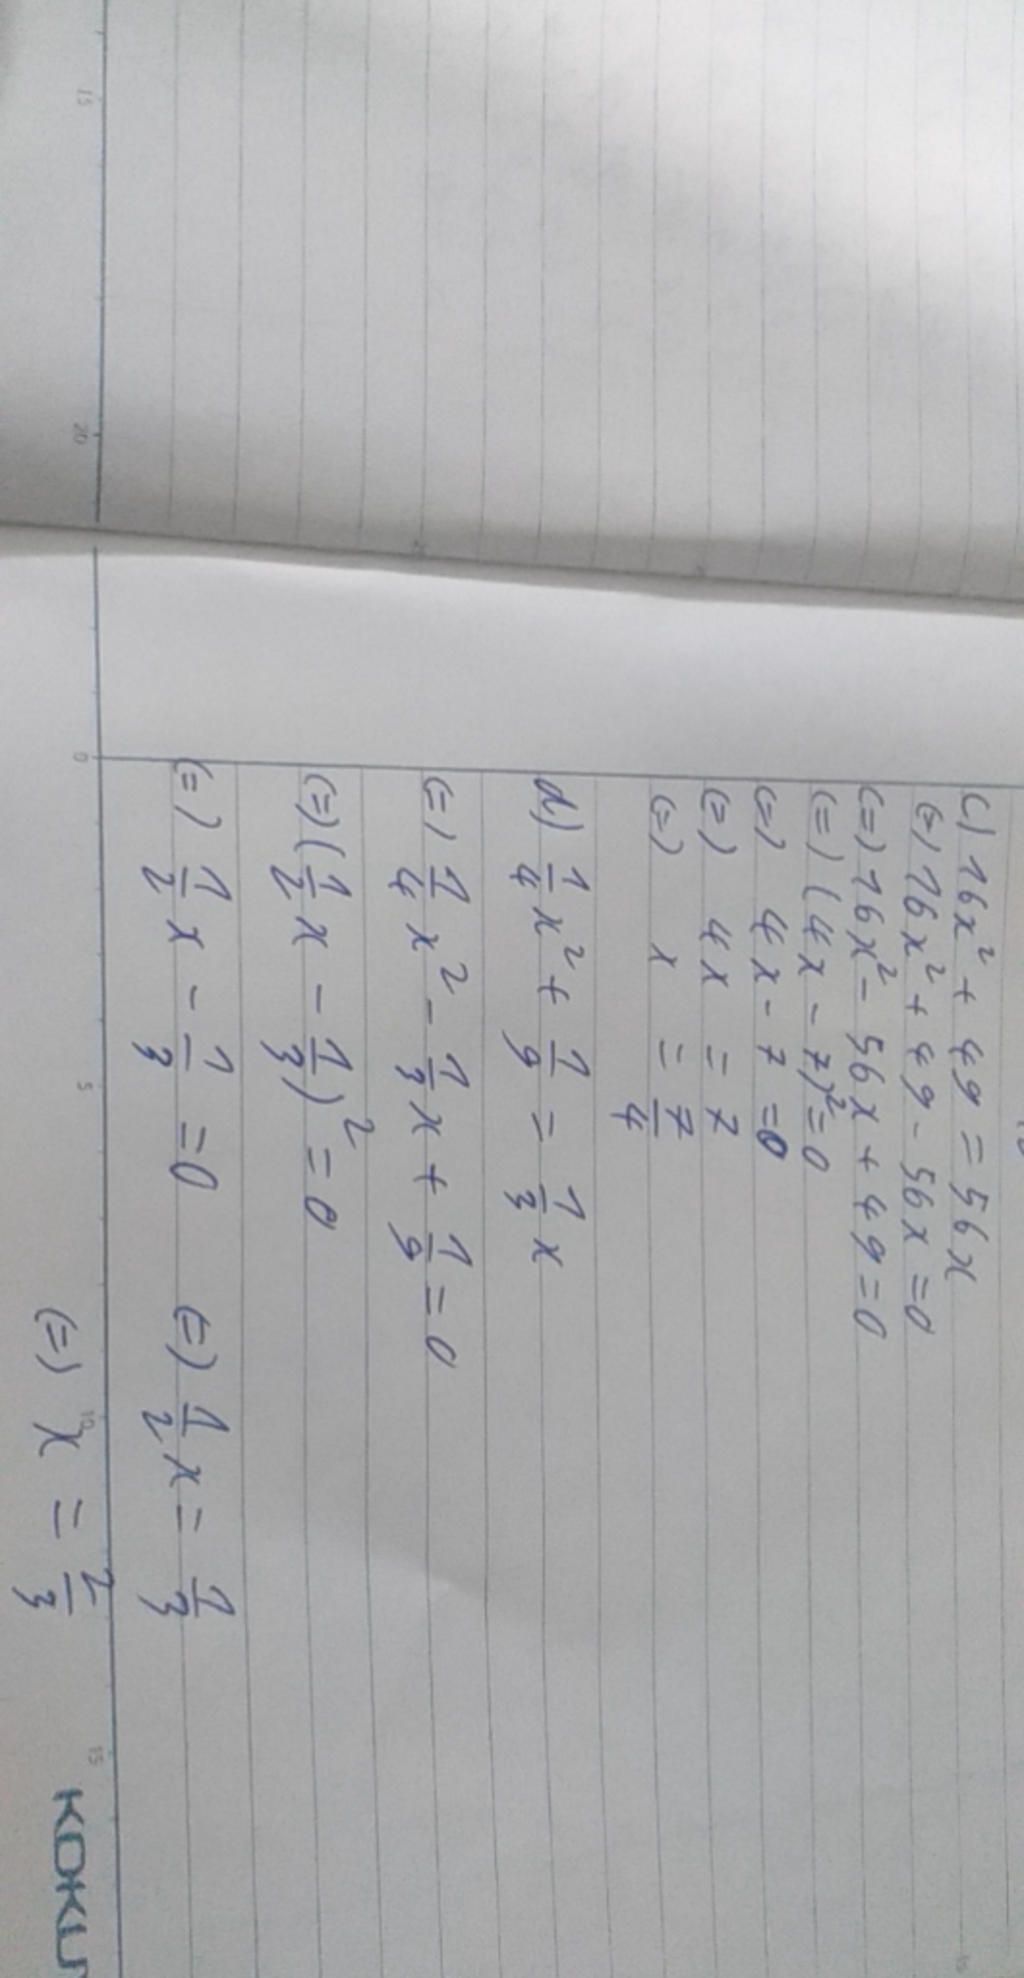 c) 16x² + 49 = 56x
(=) 16x² + 49 - 56x = 0
(=) 16x² - 56x + 49 = 0
(=) (4x - 7)² = 0
(=) 4x - 7 = 0
(=) 4x = 7
(=) x = 7/4
d) 1/4 x² + 1/9 = 1/3 x
(=) 1/4 x² - 1/3 x + 1/9 = 0
(=) (1/2 x - 1/3)² = 0
(=) 1/2 x - 1/3 = 0 (=) 1/2 x = 1/3
(=) x = 2/3
15
20
0
5
10
15